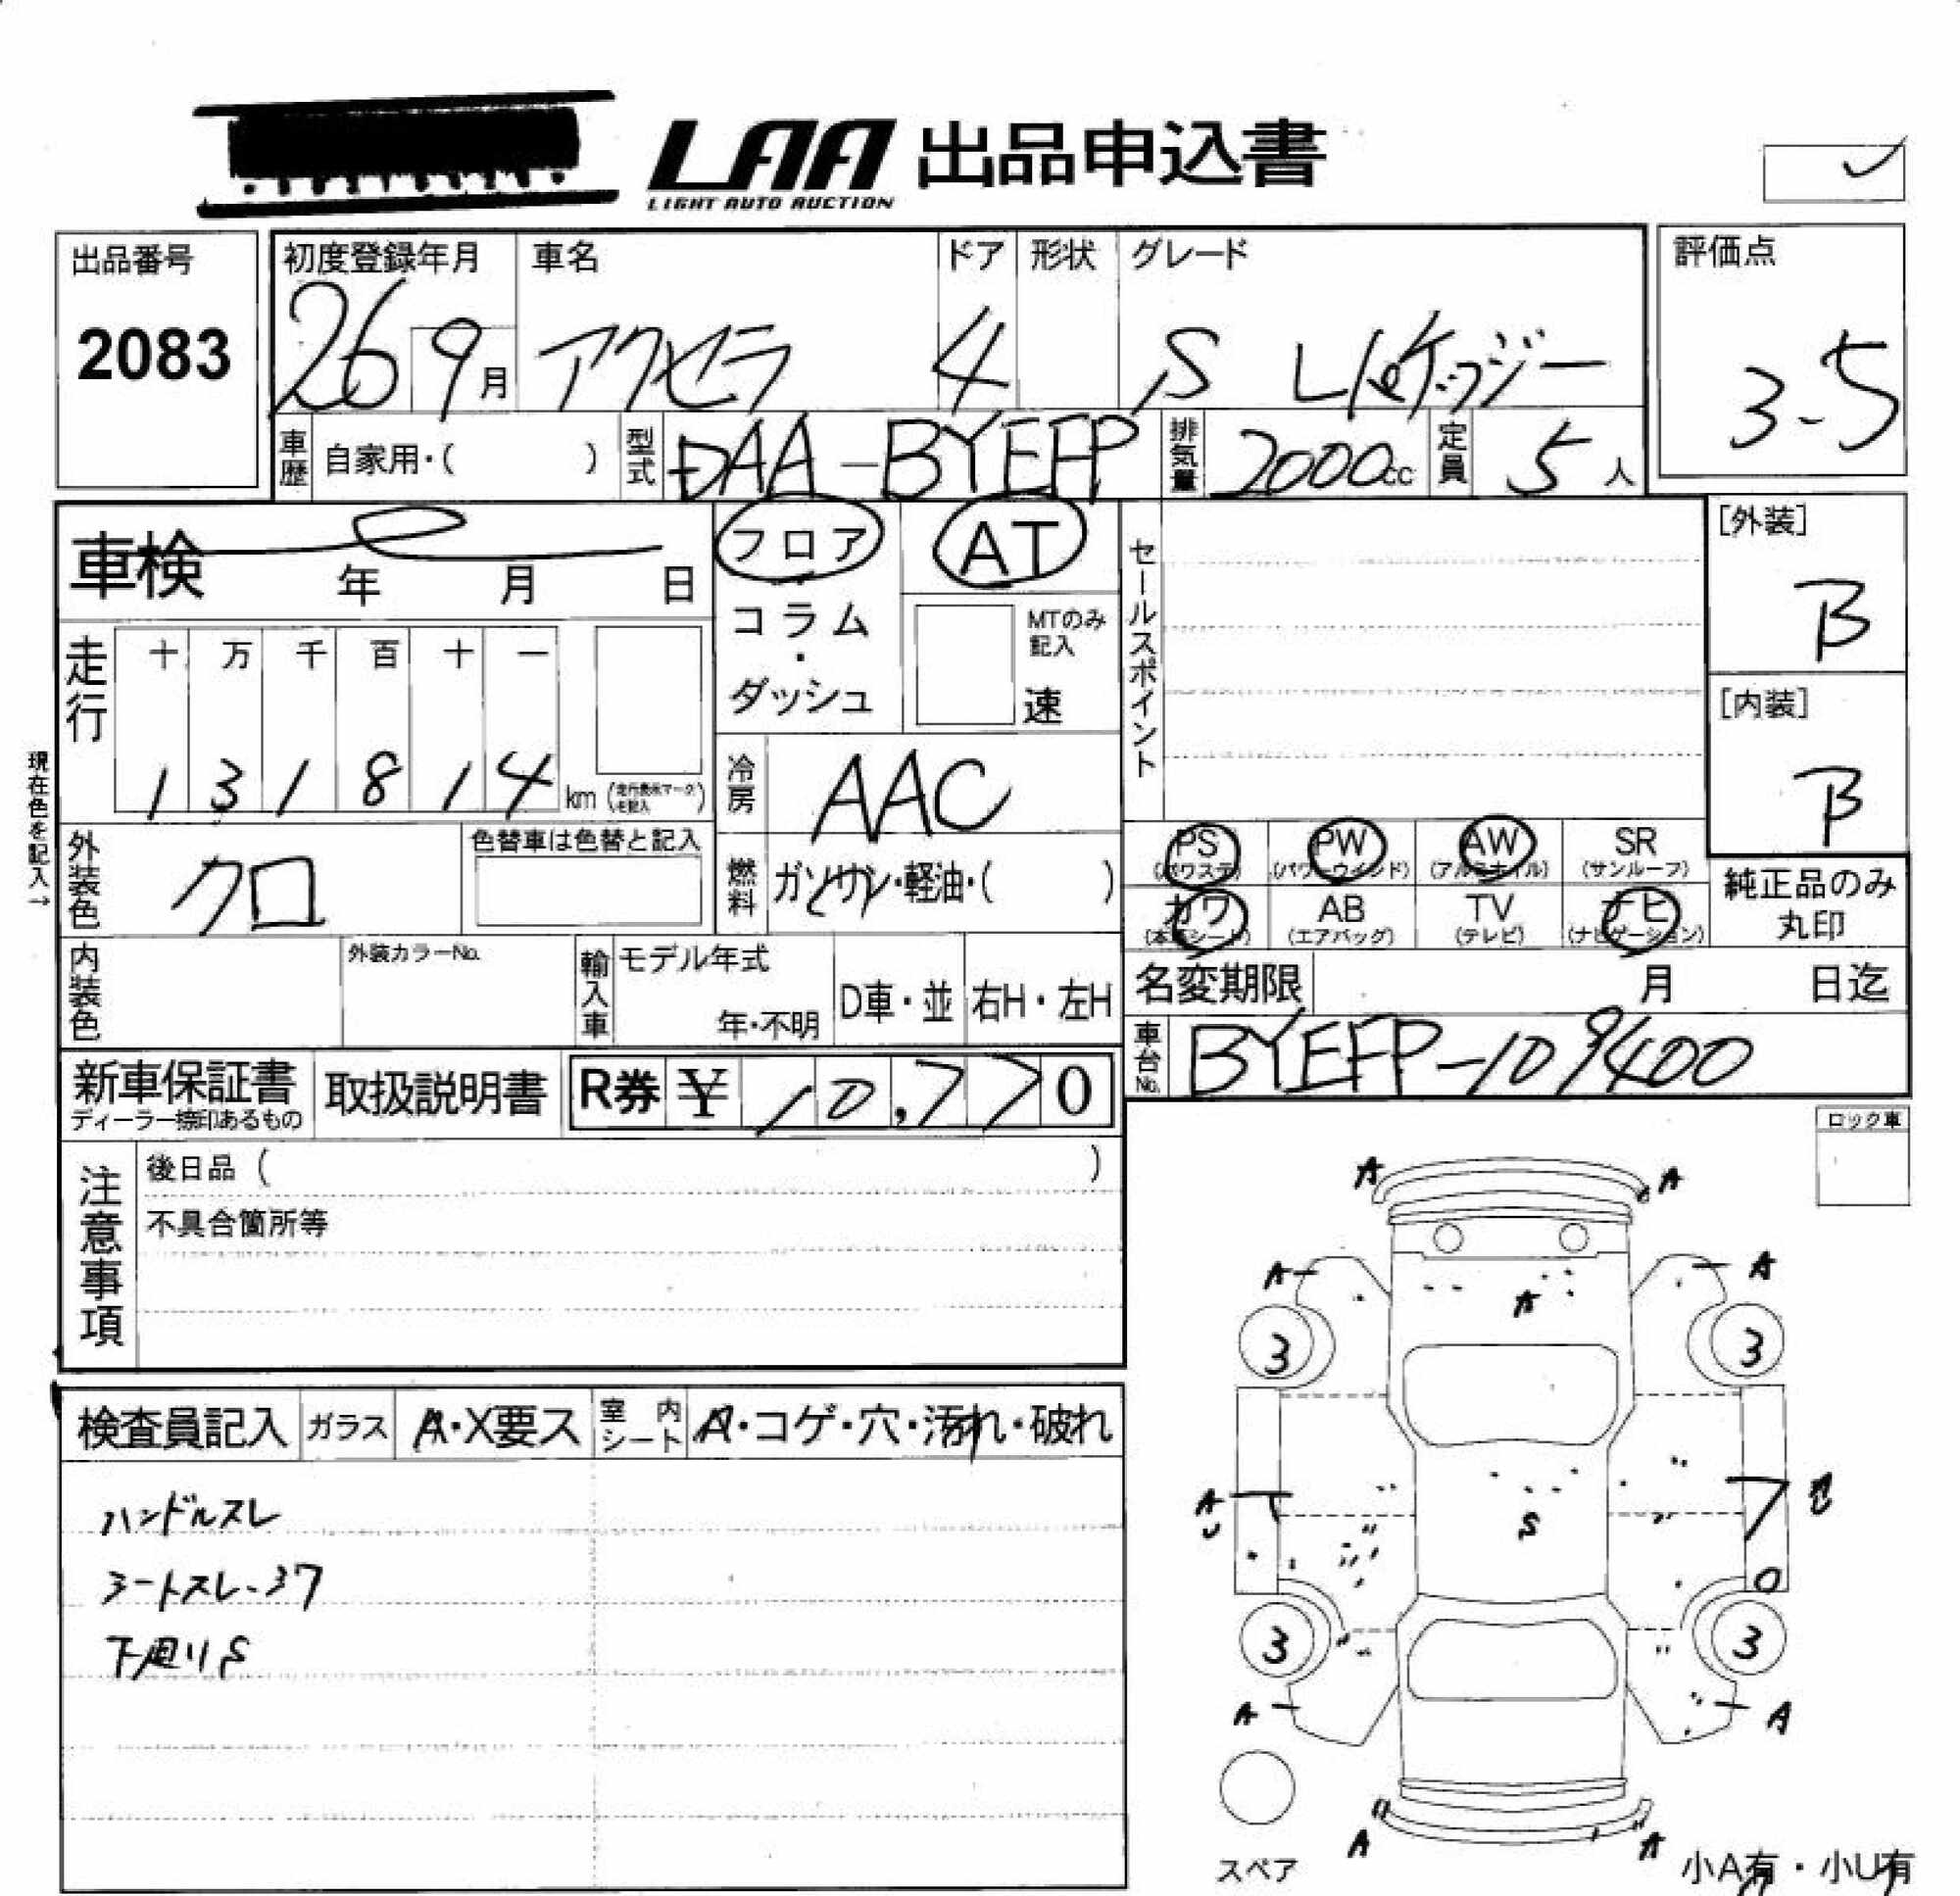 LAA 出品申込書
LIGHT AUTO AUCTION
出品番号
2083
初度登録年月
26 9月
車名
アクセラ
ドア
4
形状
グレード
S Lパケッジー
評価点
3.5
車歴 自家用・( )
型式 DAA-BYEFP
排気量 2000cc
定員 5人
車検 年 月 日
フロア・コラム・ダッシュ
AT
MTのみ記入
速
セールスポイント
[外装]
B
[内装]
B
走行
十 万 千 百 十 一
1 3 1 8 1 4 km (走行表示マークを記入)
冷房 AAC
現在色を記入→
外装色 クロ
色替車は色替と記入
燃料 ガソリン・軽油・( )
PS (パワステ) PW (パワーウインド) AW (アルミホイル) SR (サンルーフ)
カワ (本革シート) AB (エアバッグ) TV (テレビ) ナビ (ナビゲーション)
純正品のみ丸印
内装色
外装カラーNo.
輸入車 モデル年式 年・不明
D車・並
右H・左H
名変期限 月 日迄
車台No. BYEFP-109400
新車保証書
ディーラー捺印あるもの
取扱説明書
R券 ¥ 10,770
ロック車
注意事項
後日品 ( )
不具合箇所等
検査員記入 ガラス A・X要ス 室内シート A・コゲ・穴・汚れ・破れ
ハンドルスレ
シートスレ・シワ
下回りS
A A
A A
A
3 3
A
U
S
3 3
A A
A A
スペア
小A有・小U有